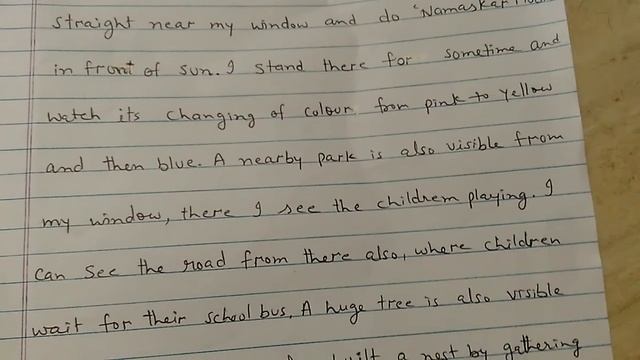 straight near my window and do 'Namaskar
in front of sun. I stand there for sometime and
watch its changing of colour from pink to yellow
and then blue. A nearby park is also visible from
my window, there I see the children playing. I
can see the road from there also, where children
wait for their school bus. A huge tree is also visible
built a nest by gathering